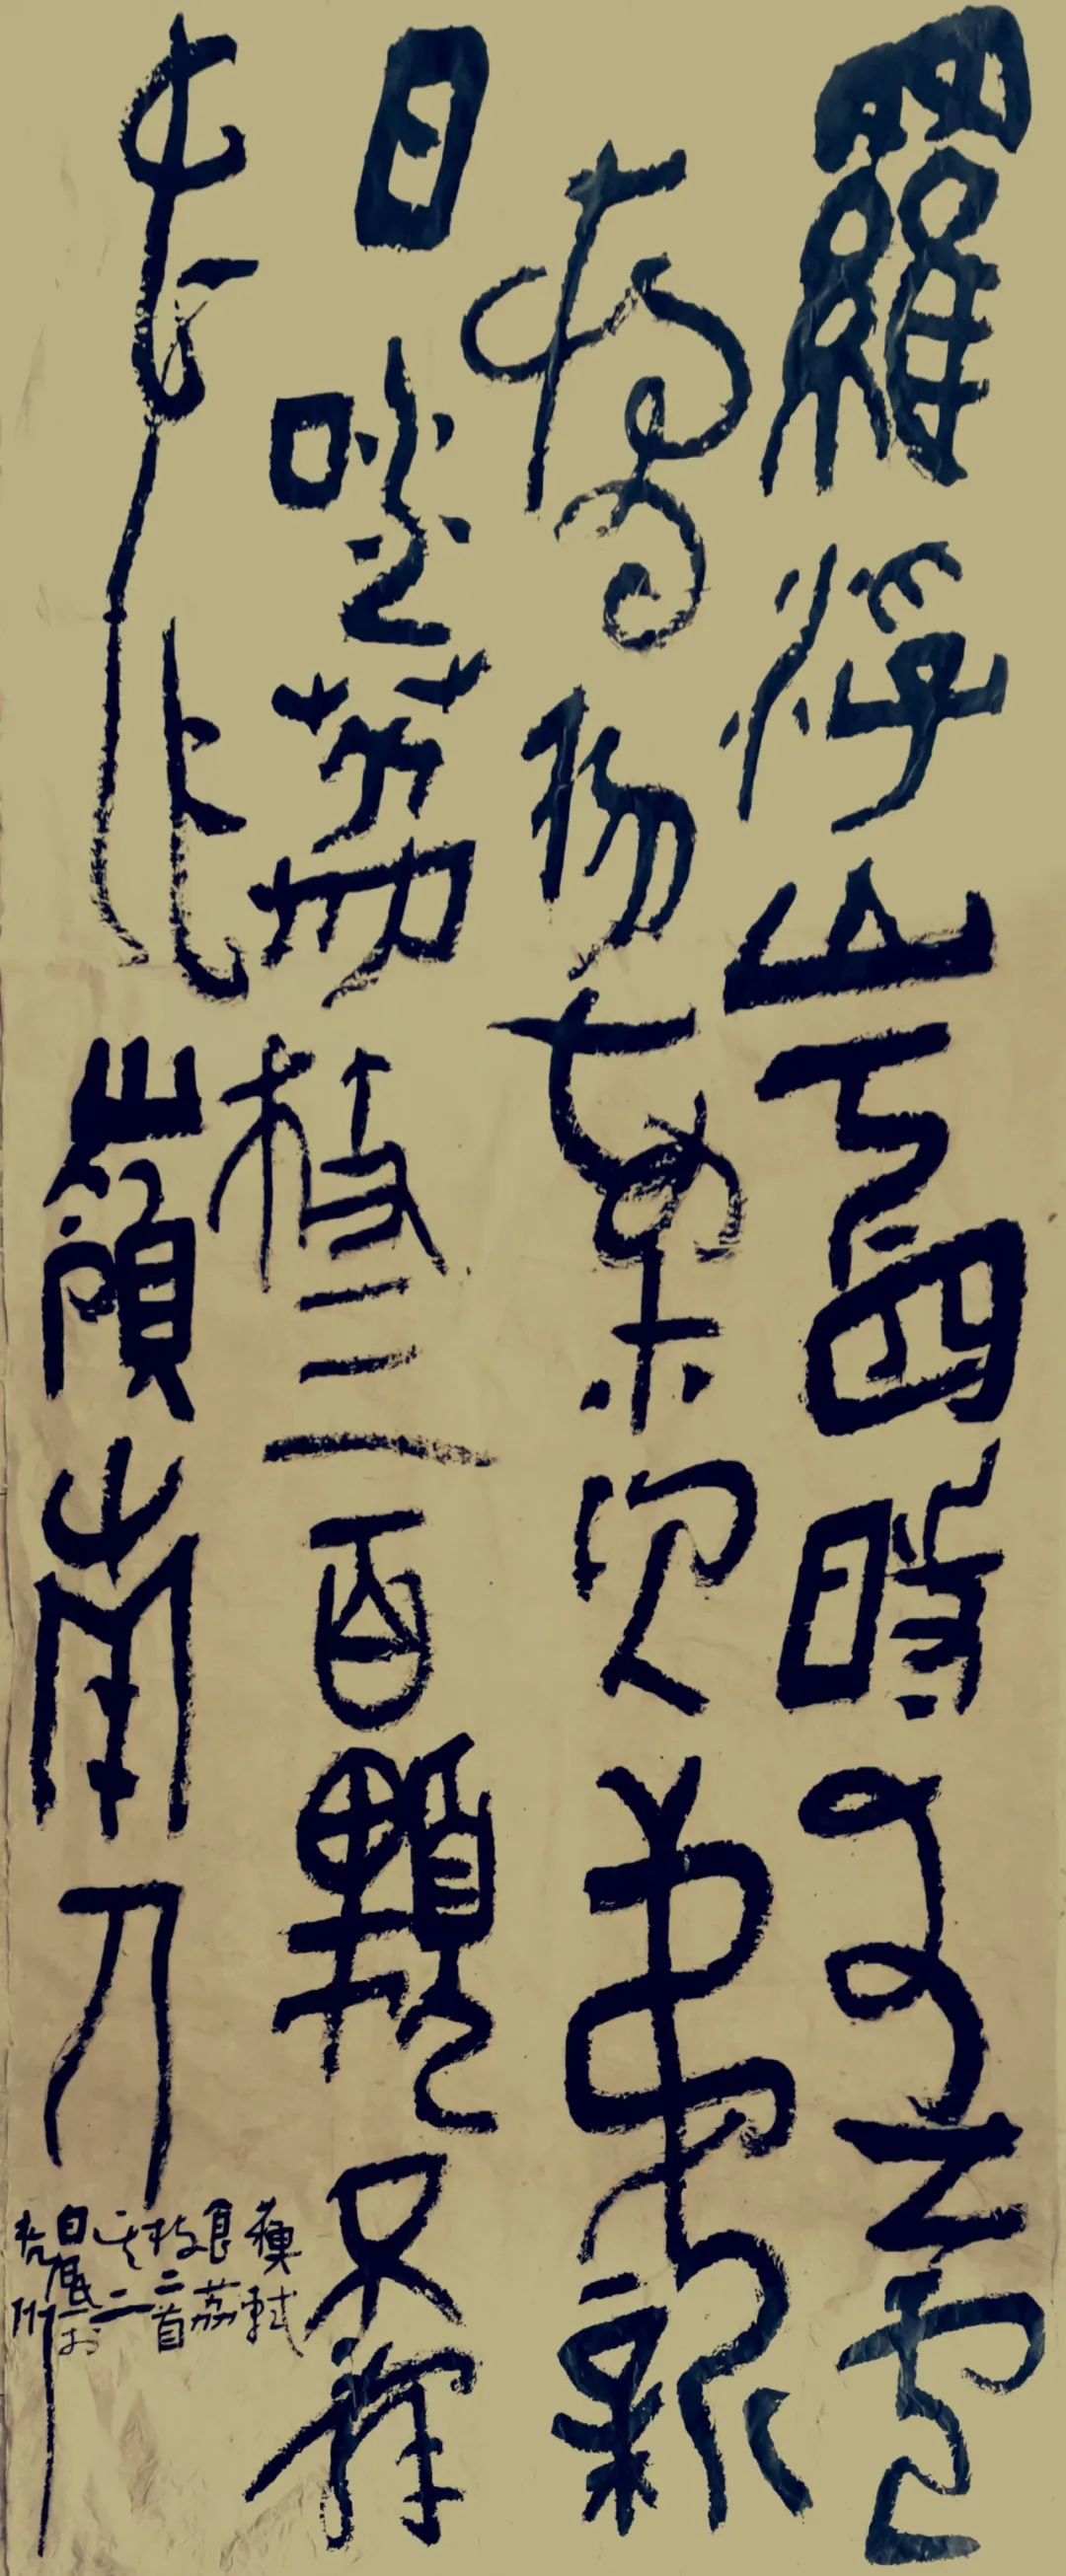 羅浮山下四時春盧
橘楊梅次第新
日啖荔枝三百顆不辭
長作嶺南人
蘇軾
食荔
枝二首
其二